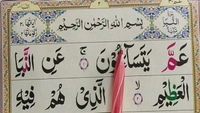 بِسْمِ اللهِ الرَّحْمٰنِ الرَّحِيْمِ
عَمَّ يَتَسَآءَلُوْنَ ۚ عَنِ النَّبَاِ
الْعَظِيْمِ ۙ الَّذِيْ هُمْ فِيْهِ